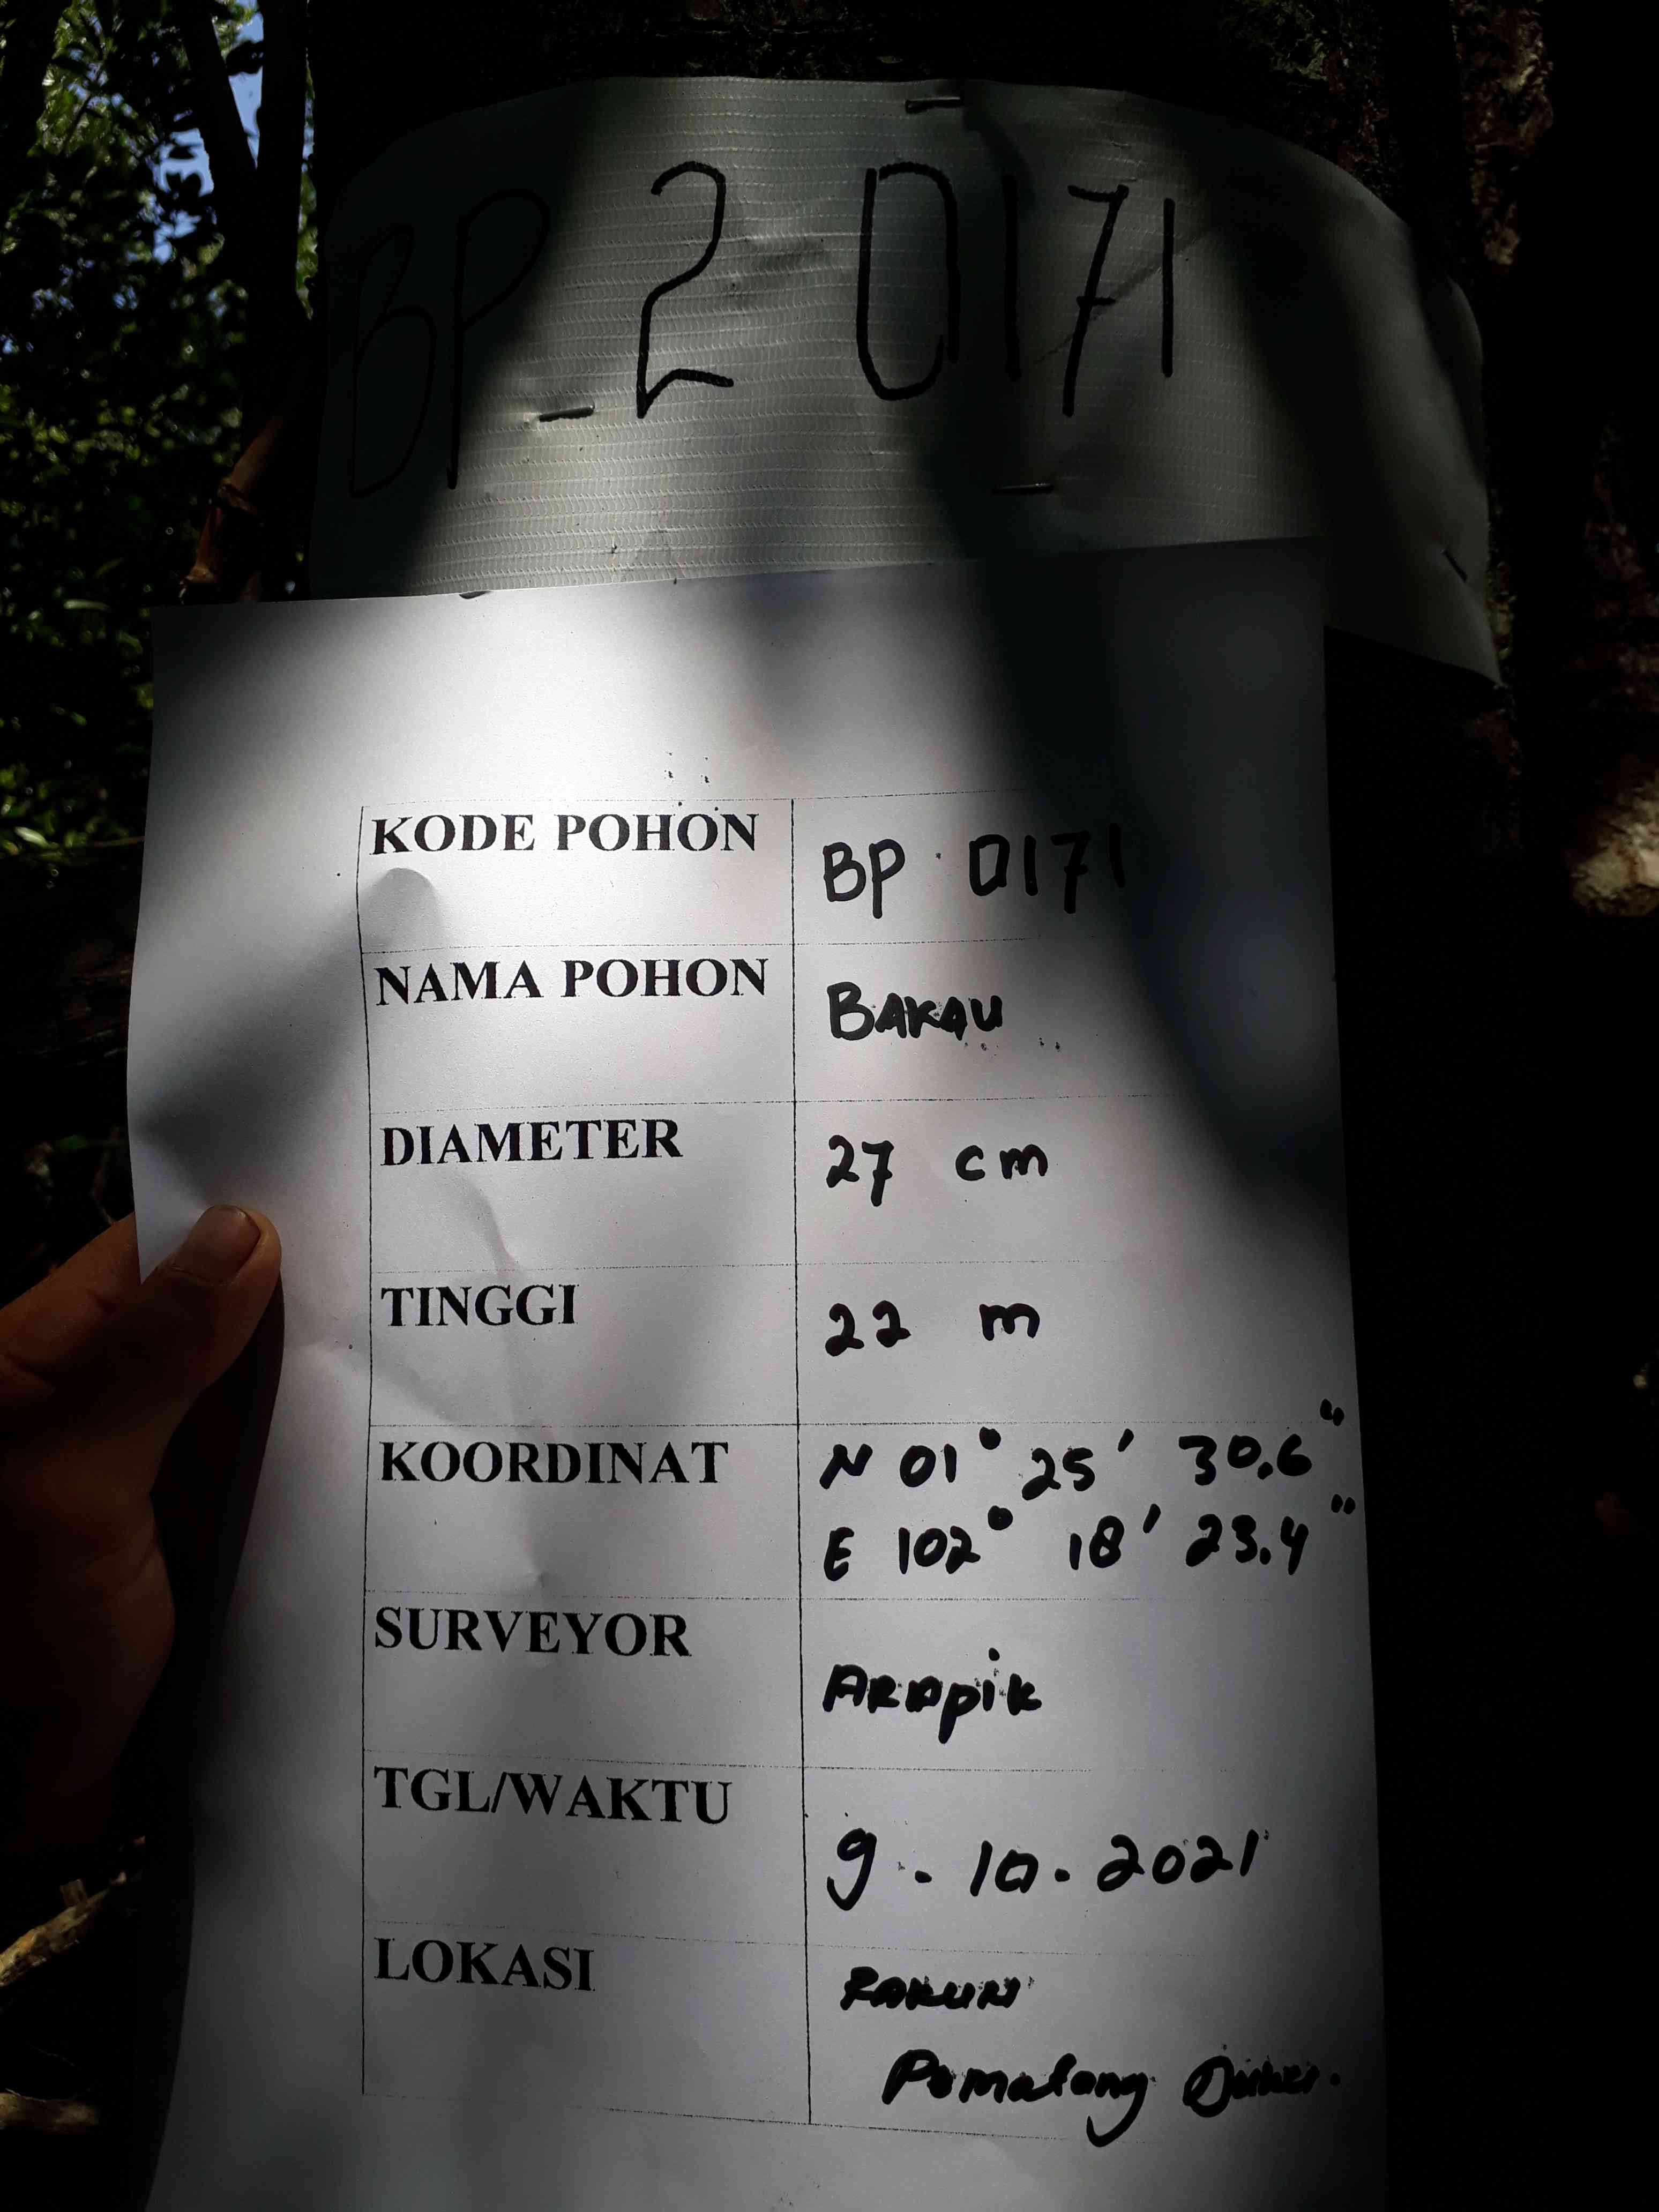 BP 2 0171
KODE POHON BP 0171
NAMA POHON BAKAU
DIAMETER 27 cm
TINGGI 22 m
KOORDINAT N 01° 25' 30.6"
E 102° 18' 23.4"
SURVEYOR ARAPIK
TGL/WAKTU 9.10.2021
LOKASI
Pematang